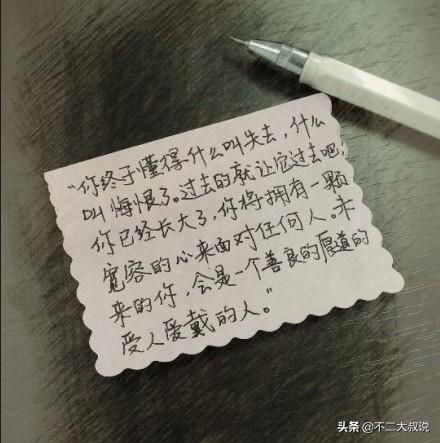 “你终于懂得什么叫失去，什么
叫悔恨了。过去的就让它过去吧，
你已经长大了，你将拥有一颗
宽容的心来面对任何人。未
来的你，会是一个善良的厚道的
受人爱戴的人。”
头条 @不二大叔说